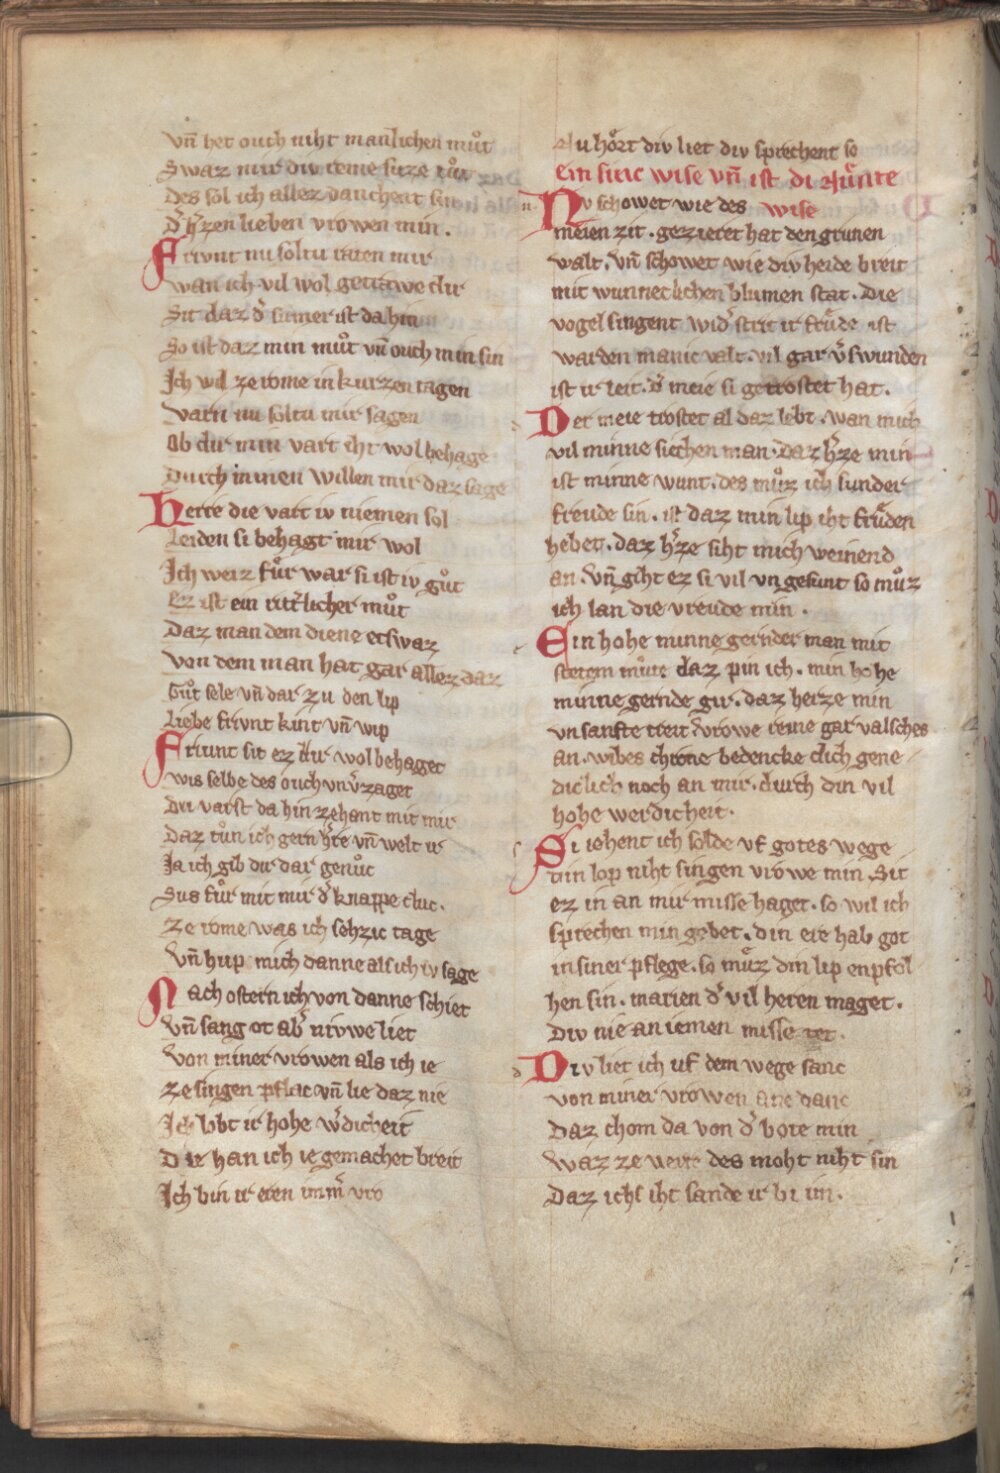 vn̄ het ouch niht manlichen můt
Swaz mir div reine suze tůt
des sol ich allez danchent sin
d̾ h̾zen lieben vrowen min.
Frivnt nu soltu raten mir
wan ich vil wol getrawe dir
Sit daz d̾ sumer ist da hin
So ist daz min můt vn̄ ouch min sin
Ich wil ze rome in kurzen tagen
varn nu soltu mir sagen
Ob dir min vart iht wol behage
Durch minen willen mir daz sage
Herre die vart iv niemen sol
Leiden si behagt mir wol
Ich weiz fůr war si ist iv gůt
Ez ist ein ritt̾licher můt
Daz man dem diene etswaz
von dem man hat gar allez daz
Gůt sele vn̄ dar zu den lip
Liebe frivnt kint vn̄ wip
Frivnt sit ez dir wol behaget
wis selbe des ouch vnv̾zaget
Du varst da hin zehant mit mir
Daz tůn ich gern h̾re vn̄ welt ir
Ja ich gib dir dar genůc
Sus fůr mit mir d̾ knappe cluc.
Ze rome was ich sehzic tage
vn̄ hup mich danne als ich iv sage
Nach ostern ich von danne schiet
vn̄ sang ot ab̾ nivwe liet
von miner vrowen als ich ie
ze singen pflac vn̄ lie daz nie
Ich lobt ir hohe w̾dicheit
Die han ich ie gemachet breit
Ich bin ir eren imm̾ vro
Nu hőrt div liet div sprechent so
ein sinc wise vn̄ ist di
Nv schowet wie des wise
meien zit. gezieret hat den grunen
walt. vn̄ schowet wie div heide breit
mit wunneclichen blumen stat. Die
vogel singent wid̾ strit ir frűde ist
warden manicvalt. vil gar v̾swunden
ist ir leit. d̾ meie si getrostet hat.
Der meie trostet al daz lebt. wan mich
vil minne siechen man. daz h̾ze min
ist minne wunt. des můz ich sunder
freude sin. ist daz min lip iht frűden
hebet. daz h̾ze siht mich weinend
an. vn̄ giht ez si vil vngesunt so můz
ich lan die vreude min.
Ein hohe minne gernder man mit
stetem můte daz pin ich. min hohe
minne gernde gir. daz herze min
vnsanfte treit vrowe reine gar valsches
an. wibes chrone bedencke dich gene
diclich noch an mir. durch din vil
hohe werdicheit.
Si iehent ich solde vf gotes wege
din lop niht singen vrowe min. Sit
ez in an mir misse haget. so wil ich
sprechen min gebet. din ere hab got
in siner pflege. so můz din lip enpfol
hen sin. marien d̾ vil heren maget.
Div nie an iemen misse tet.
Div liet ich uf dem wege sanc
von miner vrowen ane danc
Daz chom da von d̾ bote min
waz ze verre des moht niht sin
Daz ichs iht sande ir bi im.